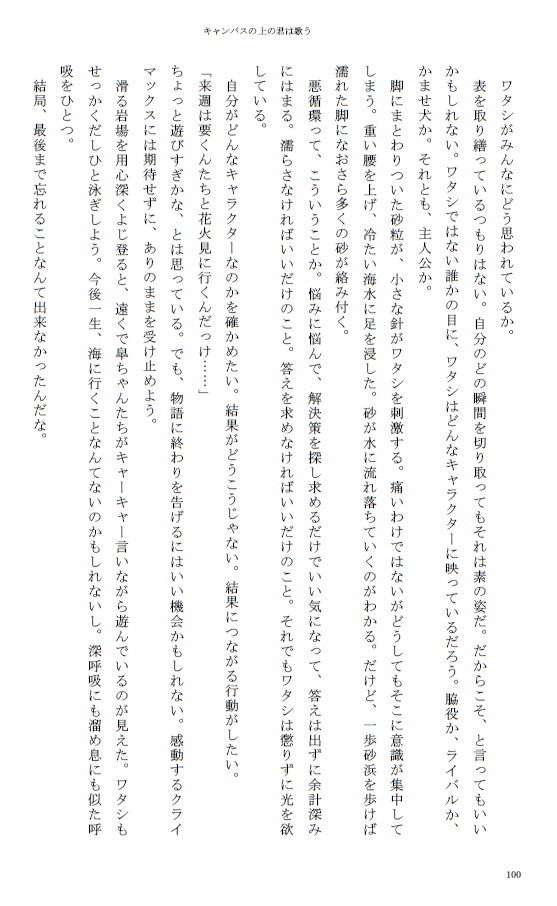 キャンバスの上の君は歌う
ワタシがみんなにどう思われているか。
表を取り繕っているつもりはない。自分のどの瞬間を切り取ってもそれは素の姿だ。だからこそ、と言ってもいい
かもしれない。ワタシではない誰かの目に、ワタシはどんなキャラクターに映っているだろう。脇役か、ライバルか、
かませ犬か。それとも、主人公か。
脚にまとわりついた砂粒が、小さな針がワタシを刺激する。痛いわけではないがどうしてもそこに意識が集中して
しまう。重い腰を上げ、冷たい海水に足を浸した。砂が水に流れ落ちていくのがわかる。だけど、一歩砂浜を歩けば
濡れた脚になおさら多くの砂が絡み付く。
悪循環って、こういうことか。悩みに悩んで、解決策を探し求めるだけでいい気になって、答えは出ずに余計深み
にはまる。濡らさなければいいだけのこと。答えを求めなければいいだけのこと。それでもワタシは懲りずに光を欲
している。
自分がどんなキャラクターなのかを確かめたい。結果がどうこうじゃない。結果につながる行動がしたい。
「来週は要くんたちと花火見に行くんだっけ……」
ちょっと遊びすぎかな、とは思っている。でも、物語に終わりを告げるにはいい機会かもしれない。感動するクライ
マックスには期待せずに、ありのままを受け止めよう。
滑る岩場を用心深くよじ登ると、遠くで皐ちゃんたちがキャーキャー言いながら遊んでいるのが見えた。ワタシも
せっかくだしひと泳ぎしよう。今後一生、海に行くことなんてないのかもしれないし。深呼吸にも溜め息にも似た呼
吸をひとつ。
結局、最後まで忘れることなんて出来なかったんだな。
100